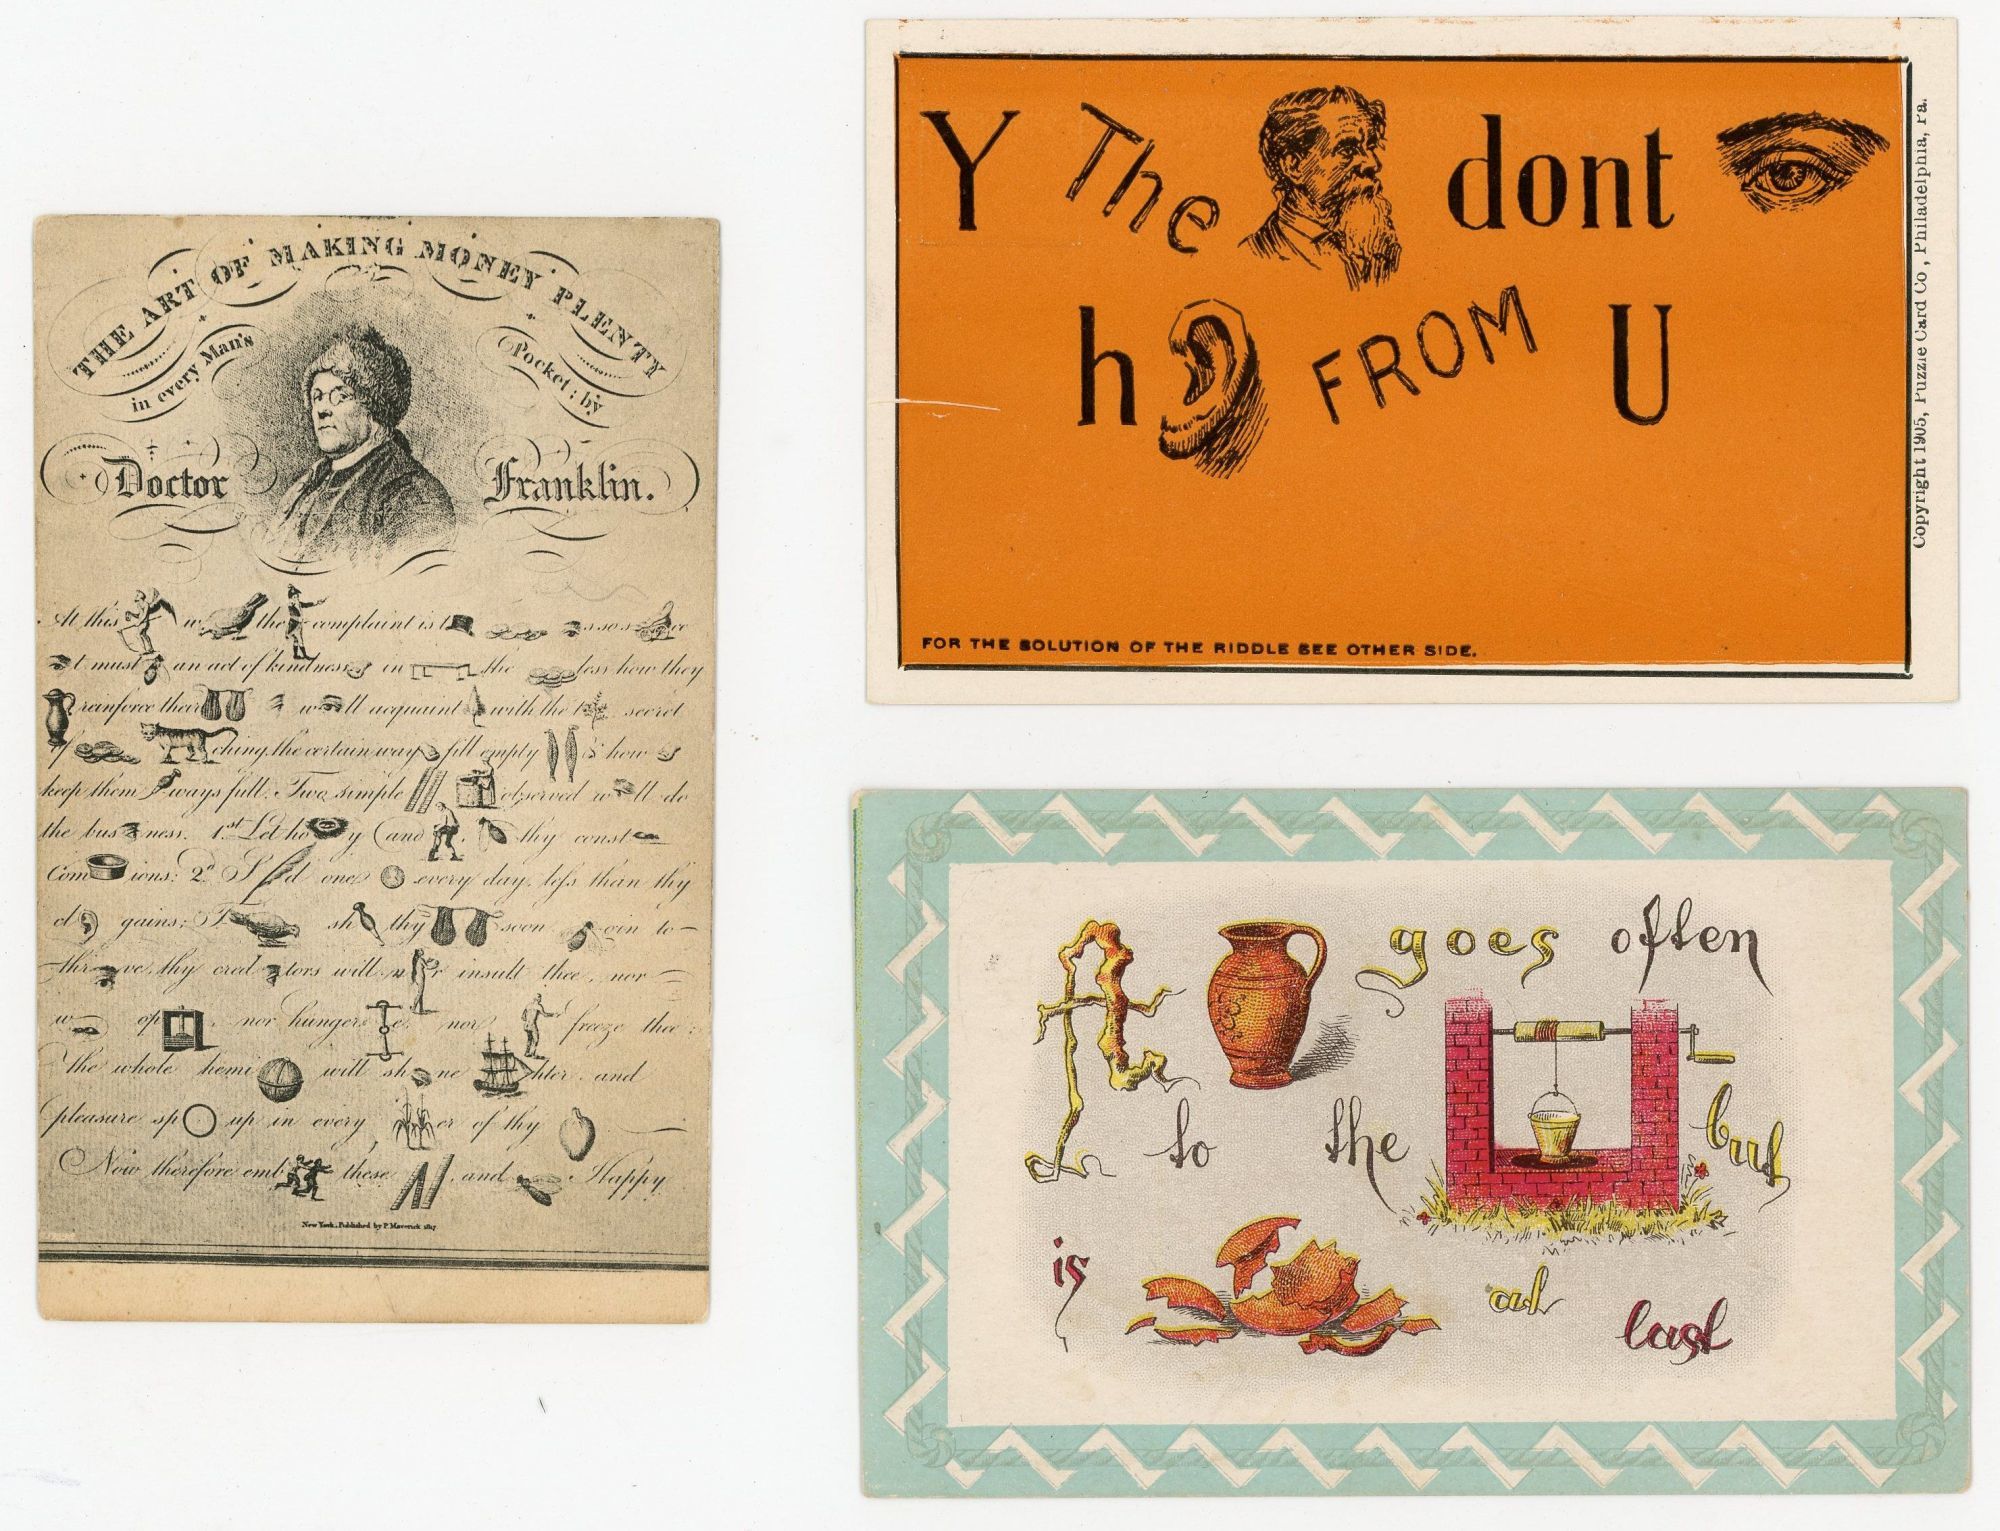 THE ART OF MAKING MONEY PLENTY
in every Man's Pocket; by
Doctor Franklin.
At this w the complaint is t s so s ce
t must an act of kindness in the less how they
reinforce their w ll acquaint with the t secret
of ching, the certain way fill empty is how
keep them ways full. Two simple observed w ll do
the bus ness. 1st Let ho y and thy const
Com ions: 2d S d one every day less than thy
cl gains; T sh thy soon gin to
thr ve, thy cred tors will n r insult thee, nor
w op nor hunger e nor freeze thee:
the whole hemi will sh ne hter, and
pleasure sp up in every er of thy
Now therefore emb these and Happy
New York. Published by P. Maverick 1817
Y The dont
h FROM U
FOR THE SOLUTION OF THE RIDDLE SEE OTHER SIDE.
Copyright 1905, Puzzle Card Co, Philadelphia, Pa.
A goes often
to the but
is at last